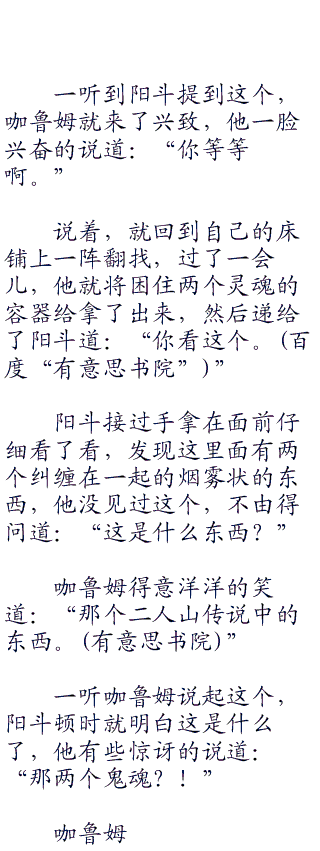 一听到阳斗提到这个，
咖鲁姆就来了兴致，他一脸
兴奋的说道：“你等等
啊。”
说着，就回到自己的床
铺上一阵翻找，过了一会
儿，他就将困住两个灵魂的
容器给拿了出来，然后递给
了阳斗道：“你看这个。(百
度“有意思书院”)”
阳斗接过手拿在面前仔
细看了看，发现这里面有两
个纠缠在一起的烟雾状的东
西，他没见过这个，不由得
问道：“这是什么东西？”
咖鲁姆得意洋洋的笑
道：“那个二人山传说中的
东西。(有意思书院)”
一听咖鲁姆说起这个，
阳斗顷时就明白这是什么
了，他有些惊讶的说道：
“那两个鬼魂？！”
咖鲁姆